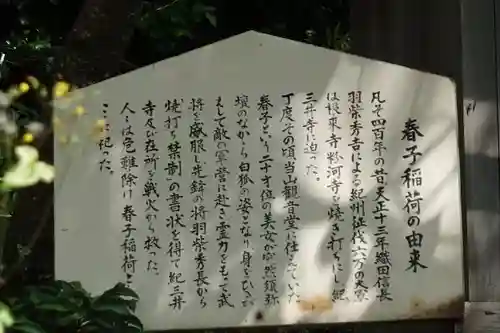 春子稲荷の由来
凡そ四百年の昔天正十三年織田信長
羽柴秀吉による紀州征伐六万の大軍
は根来寺粉河寺を焼き打ちにし紀
三井寺に迫った。
丁度その頃当山観音堂に仕えていた
春子という二十才位の美女が突然須弥
壇のなかから白狐の姿となり身をひるが
えして敵の軍営に赴き霊力をもて武
将を威服し先鋒の将羽柴秀長から
焼打ち禁制の書状を得て紀三井
寺及び在所を戦火から救った。
人々は危難除け春子稲荷と
こゝに祀った。